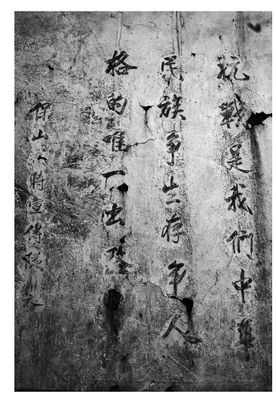 抗戰是我們中華
民族爭生存爭人
格的唯一出路
保山　時宣傳隊